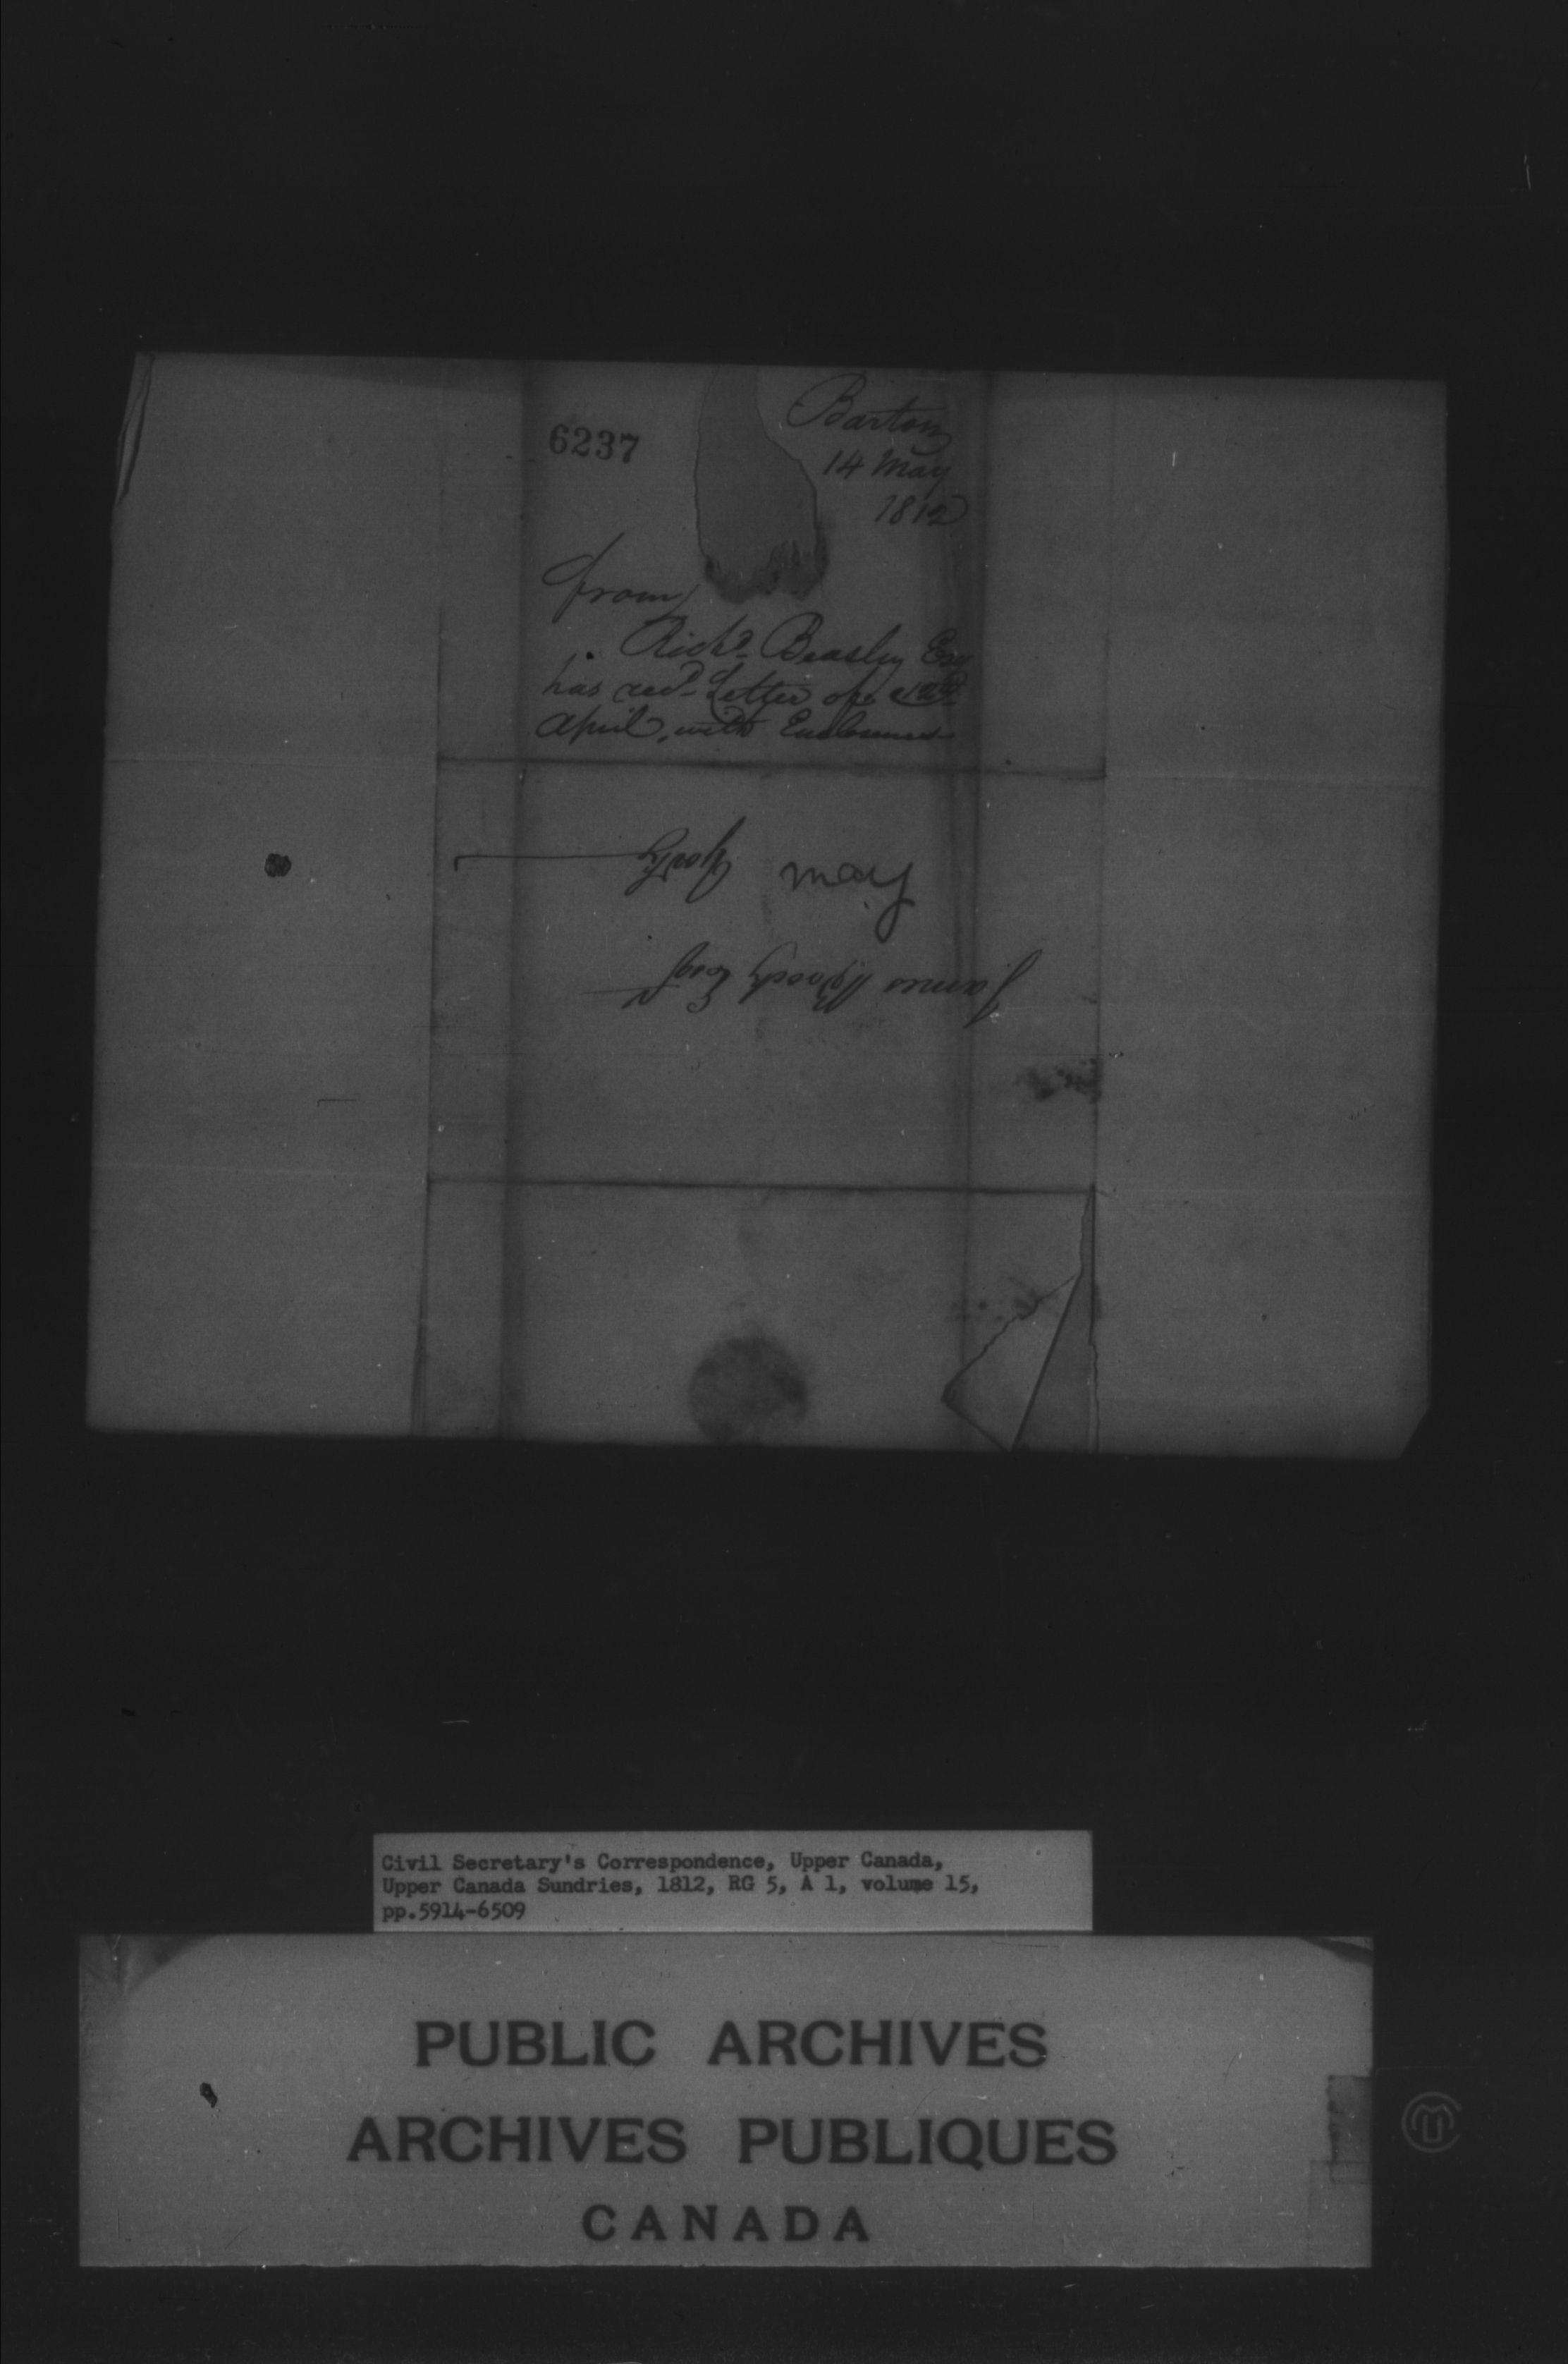 6237
Barton
14 May
1812
from
Richd. Beasley Esq
has recd. Letter of
April, with Enclosures
may
York
James Esqr
Civil Secretary's Correspondence, Upper Canada,
Upper Canada Sundries, 1812, RG 5, A 1, volume 15,
pp.5914-6509
PUBLIC ARCHIVES
ARCHIVES PUBLIQUES
CANADA